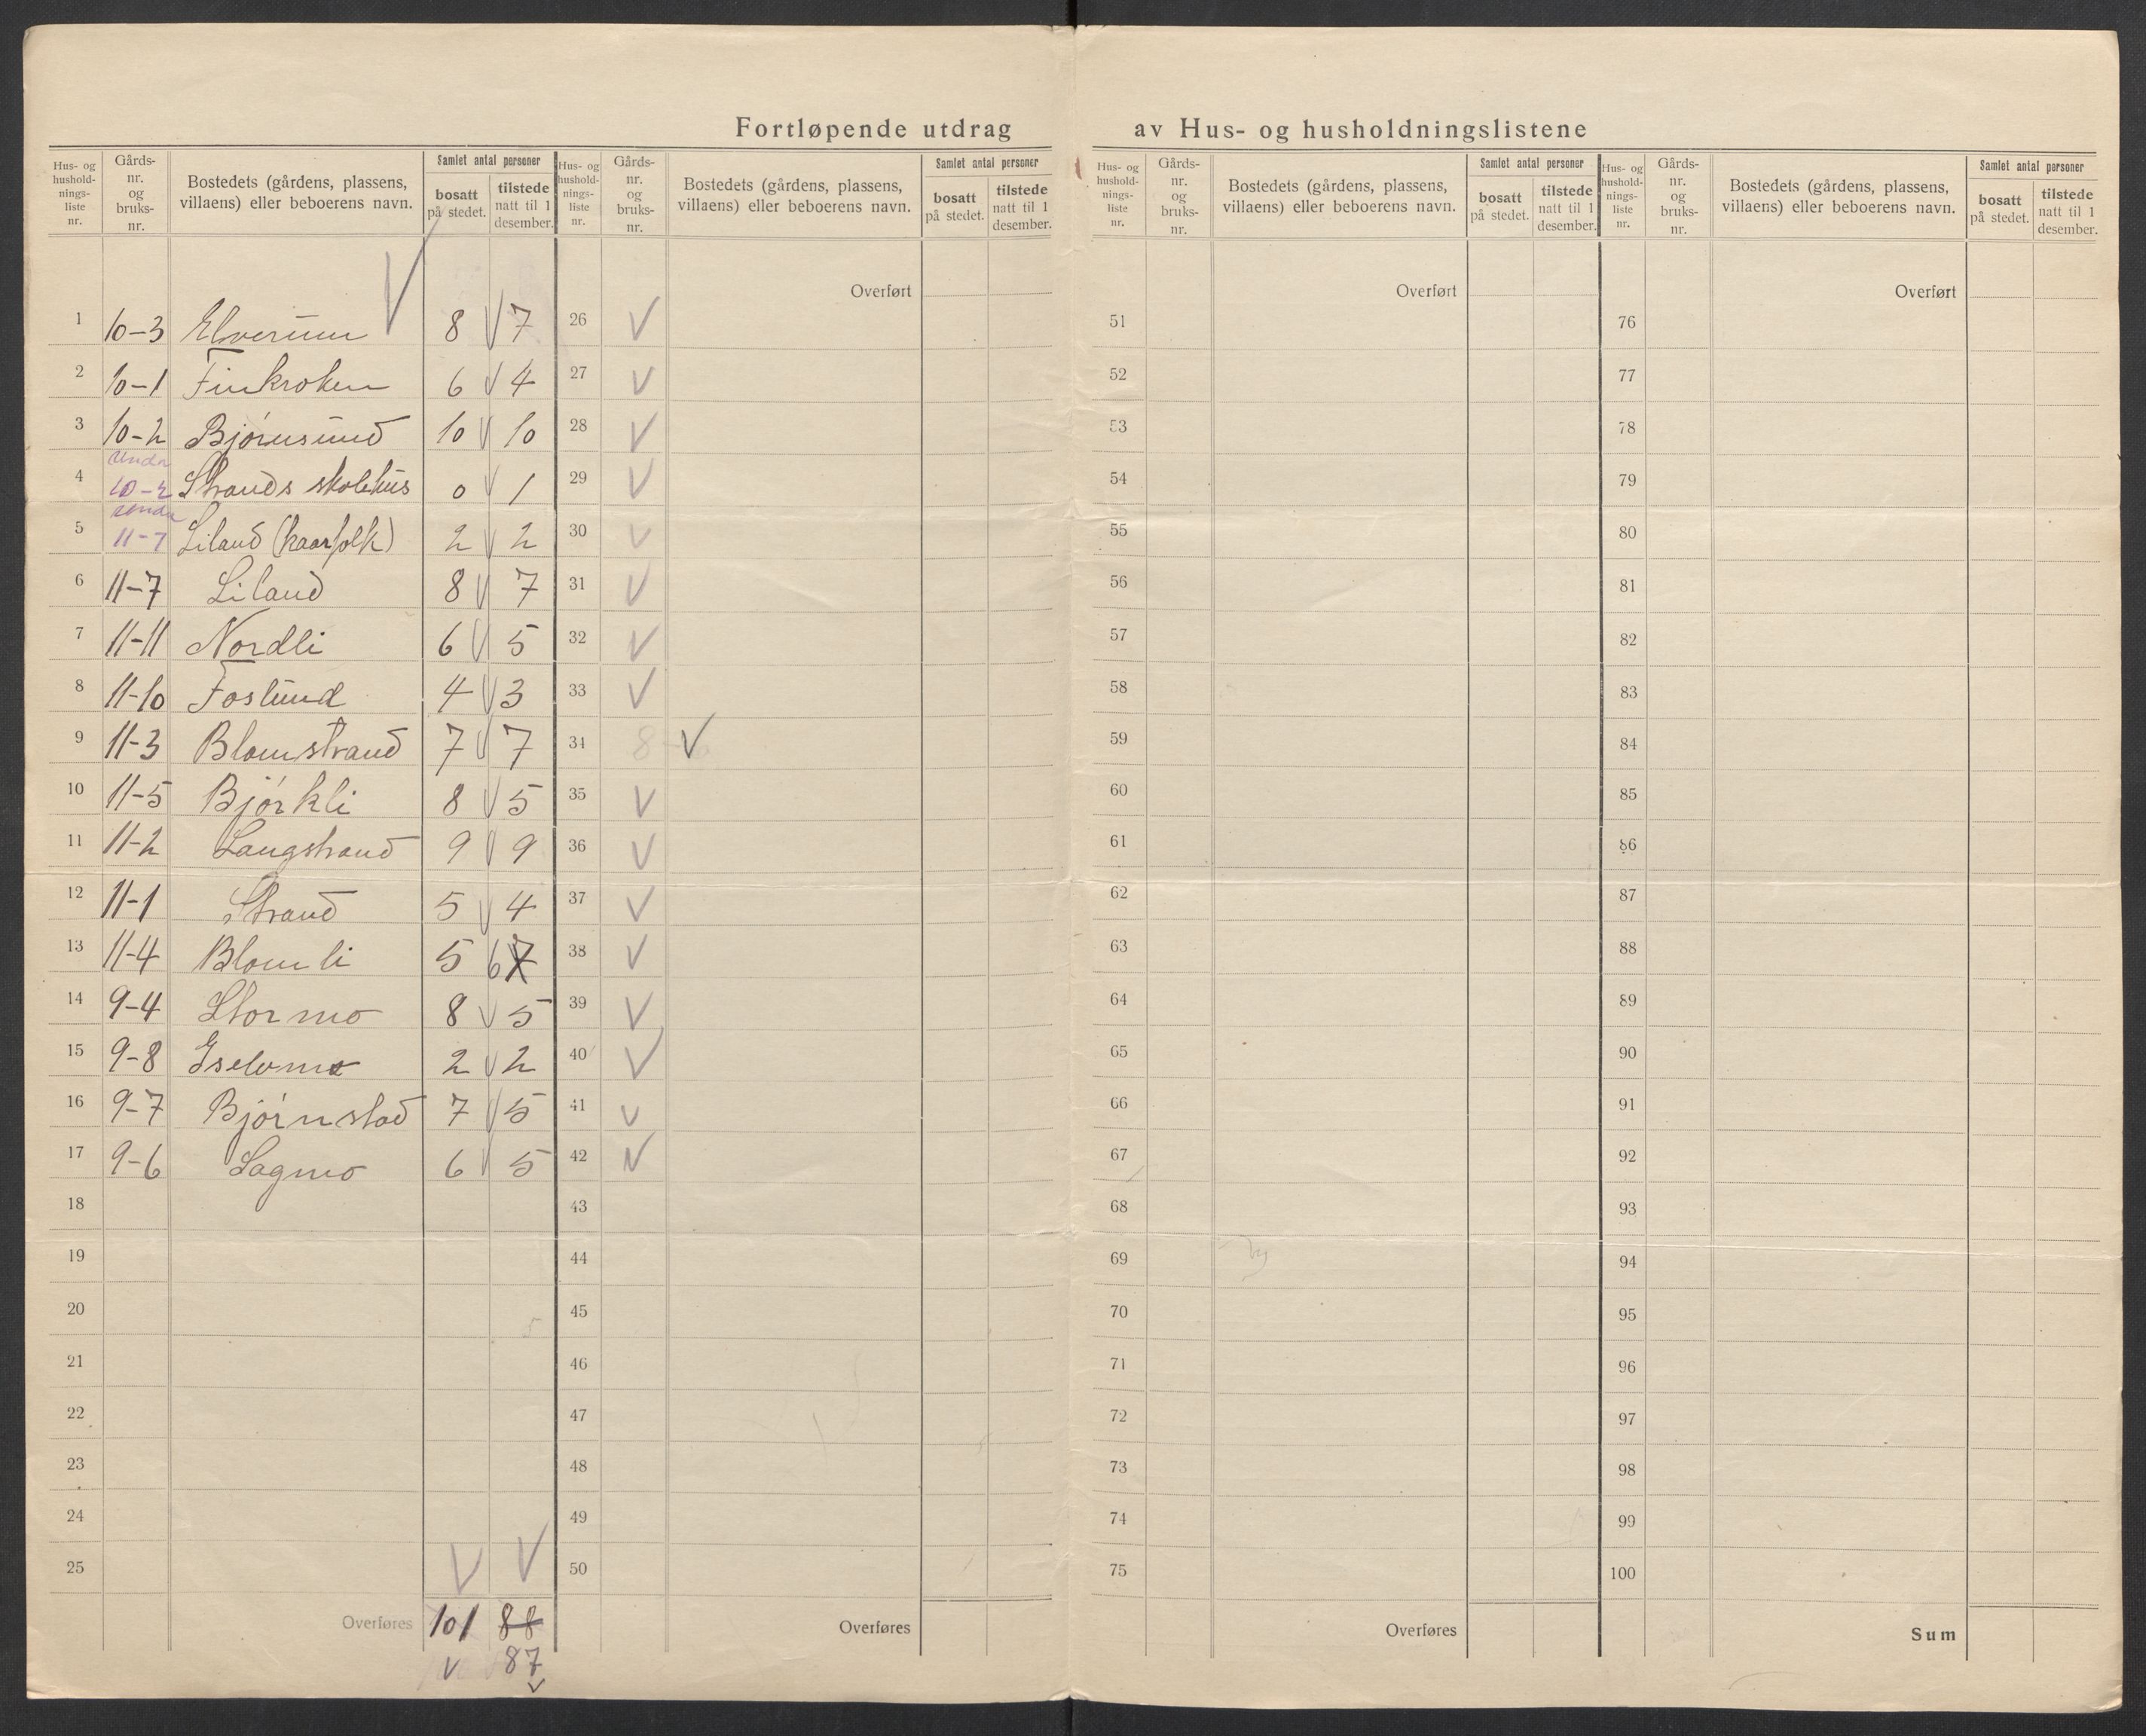 Fortløpende utdrag av Hus- og husholdningslistene
Hus- og hushold-nings-liste nr. Gårds-nr. og bruks-nr. Bostedets (gårdens, plassens, villaens) eller beboerens navn. Samlet antal personer bosatt på stedet. tilstede natt til 1 desember.
Hus- og hushold-nings-liste nr. Gårds-nr. og bruks-nr. Bostedets (gårdens, plassens, villaens) eller beboerens navn. Samlet antal personer bosatt på stedet. tilstede natt til 1 desember.
Hus- og hushold-nings-liste nr. Gårds-nr. og bruks-nr. Bostedets (gårdens, plassens, villaens) eller beboerens navn. Samlet antal personer bosatt på stedet. tilstede natt til 1 desember.
Hus- og hushold-nings-liste nr. Gårds-nr. og bruks-nr. Bostedets (gårdens, plassens, villaens) eller beboerens navn. Samlet antal personer bosatt på stedet. tilstede natt til 1 desember.
Overført Overført Overført
1 10-3 Elverum 8 7 26 51 76
2 10-1 Finkroken 6 4 27 52 77
3 10-2 Bjørnsund 10 10 28 53 78
4 under 10-2 Strands skolehus 0 1 29 54 79
5 under 11-7 Liland (kaarfolk) 2 2 30 55 80
6 11-7 Liland 8 7 31 56 81
7 11-11 Nordli 6 5 32 57 82
8 11-10 Foslund 4 3 33 58 83
9 11-3 Blomstrand 7 7 34 59 84
10 11-5 Bjórkli 8 5 35 60 85
11 11-2 Langstrand 9 9 36 61 86
12 11-1 Strand 5 4 37 62 87
13 11-4 Blomli 5 6 7 38 63 88
14 9-4 Stormo 8 5 39 64 89
15 9-8 Iselvmo 2 2 40 65 90
16 9-7 Bjórnstad 7 5 41 66 91
17 9-6 Lagmo 6 5 42 67 92
18 43 68 93
19 44 69 94
20 45 70 95
21 46 71 96
22 47 72 97
23 48 73 98
24 49 74 99
25 50 75 100
Overføres 101 88 Overføres Overføres Sum
87